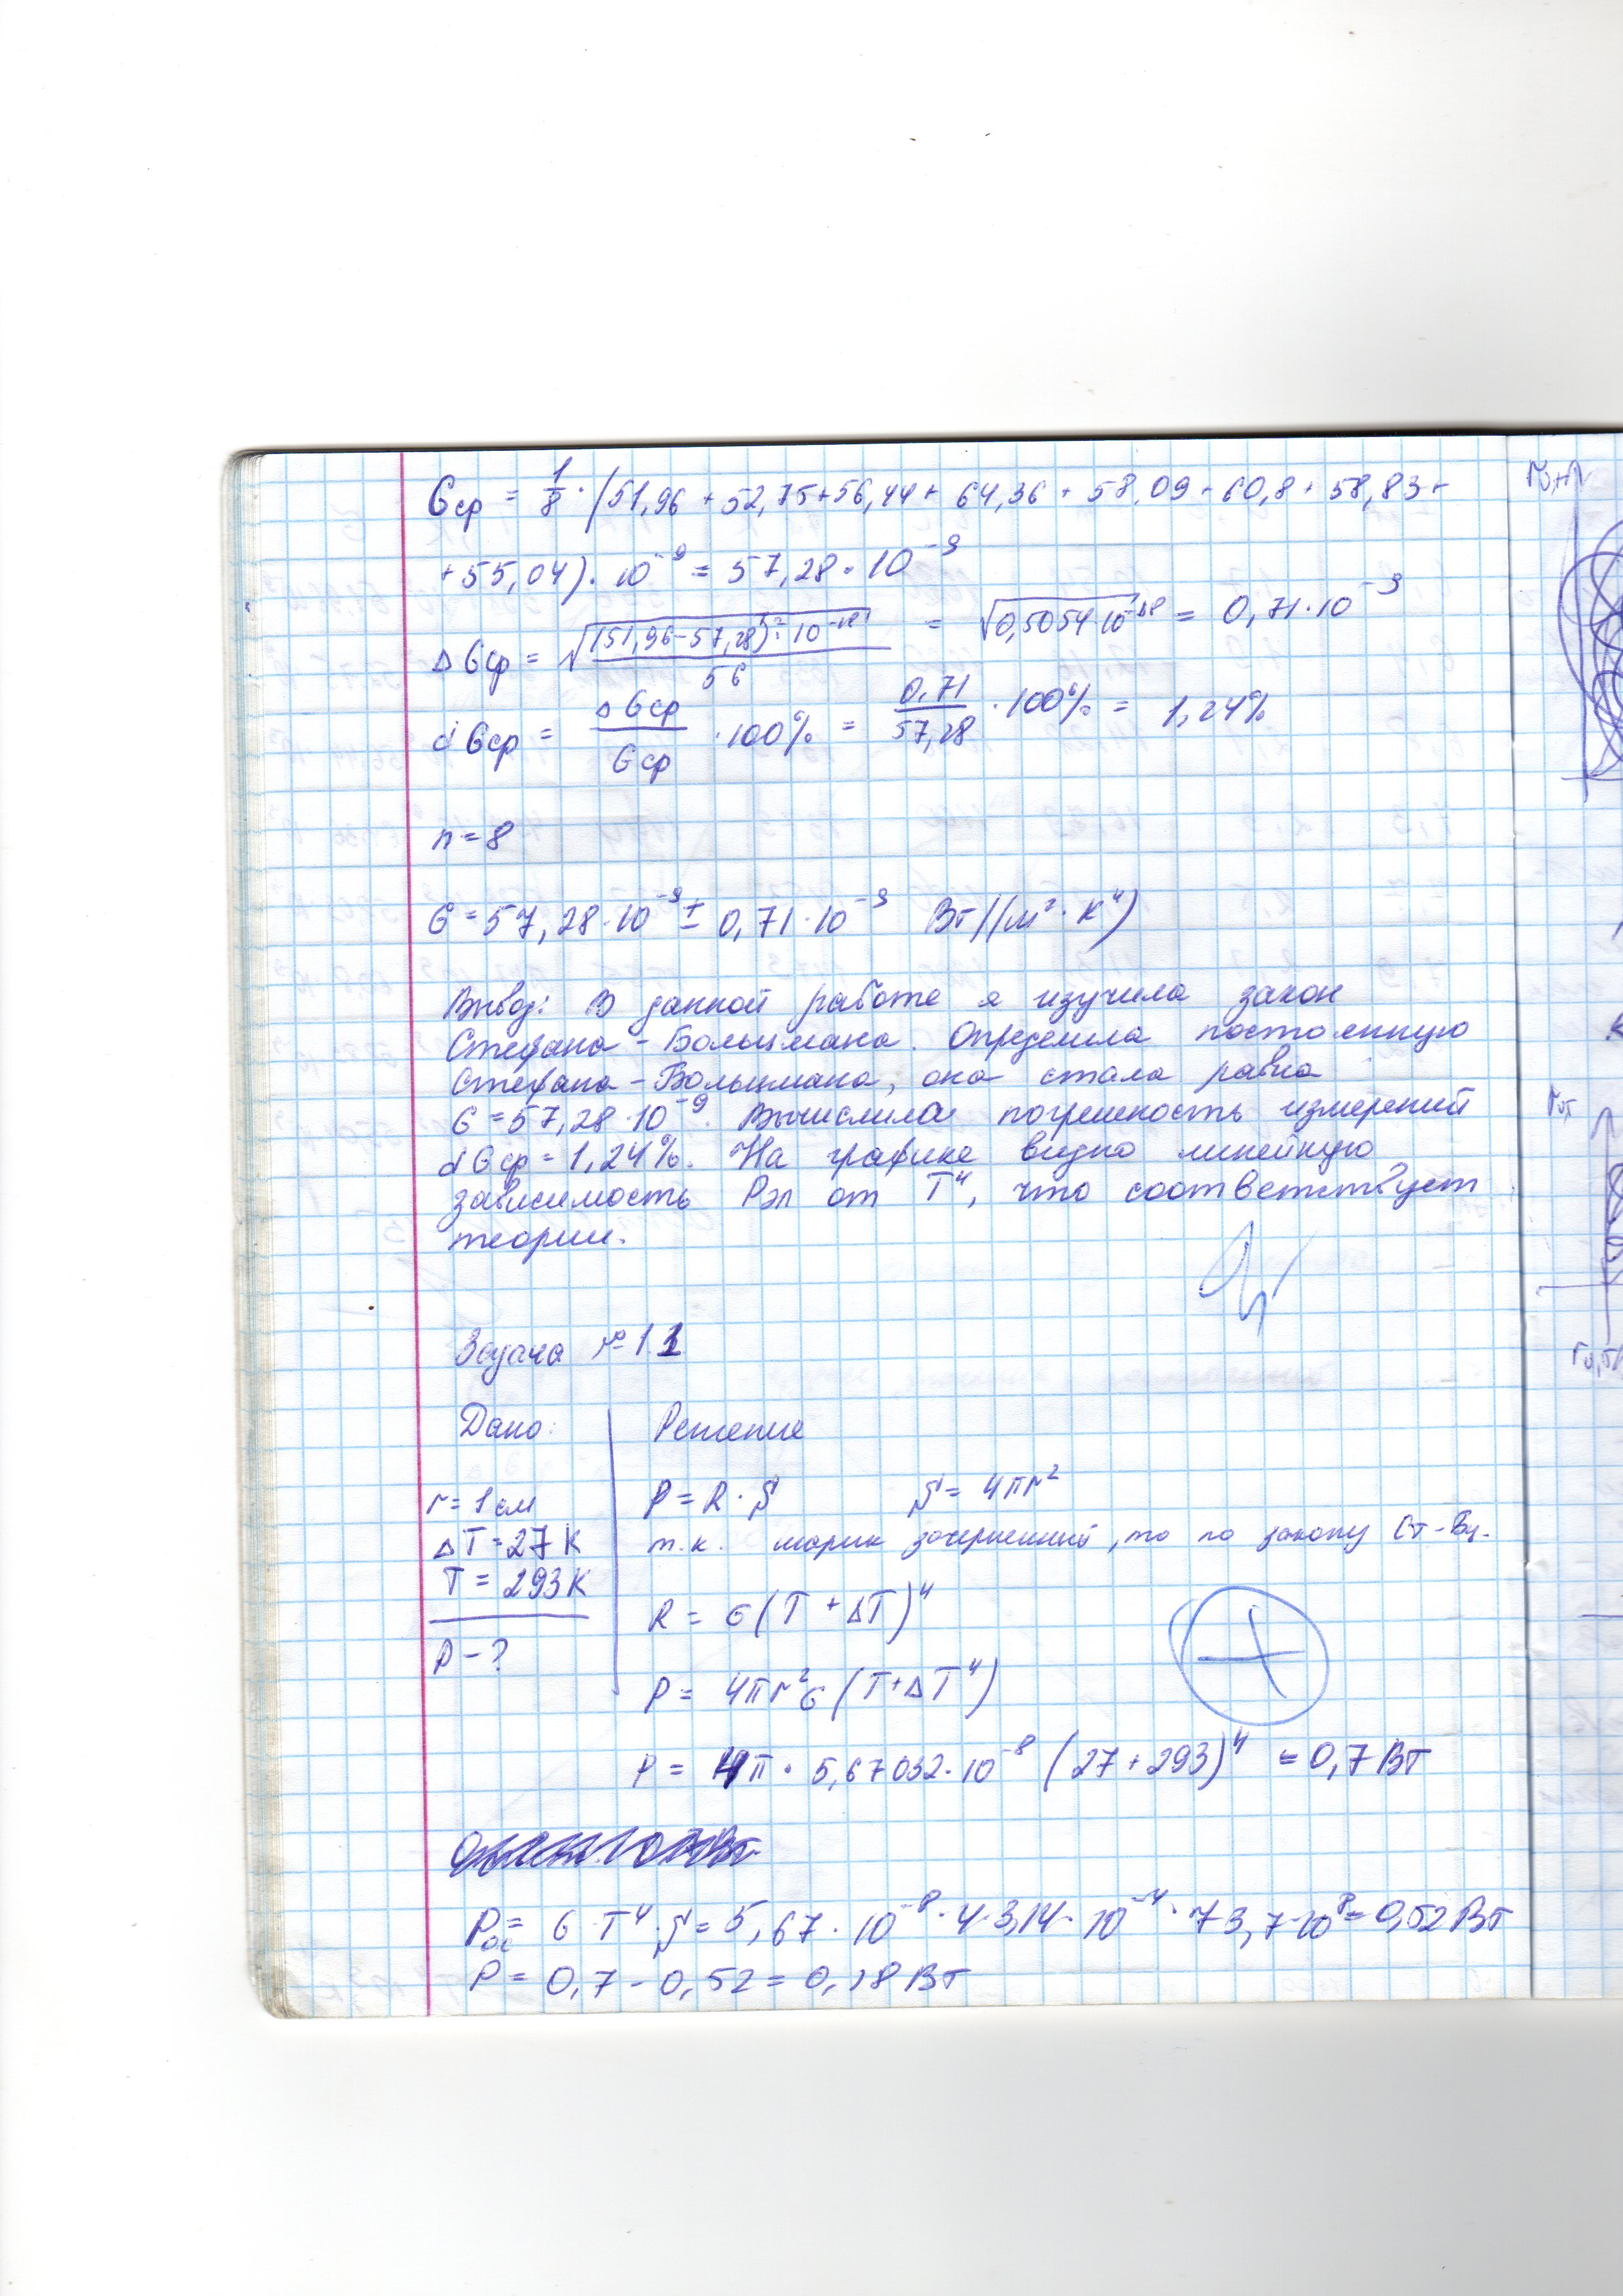 σср = 1/8 · (51,96 + 52,75 + 56,44 + 64,36 + 58,09 + 60,8 + 58,83 +
+ 55,04) · 10⁻⁹ = 57,28 · 10⁻⁹
Δσср = √((51,96 - 57,28)² · 10⁻¹⁸ / 56) = √(0,5054 · 10⁻¹⁸) = 0,71 · 10⁻⁹
dσср = Δσср / σср · 100% = 0,71 / 57,28 · 100% = 1,24%
n = 8
σ = 57,28 · 10⁻⁹ ± 0,71 · 10⁻⁹ Вт/(м² · К⁴)
Вывод: В данной работе я изучила закон
Стефана - Больцмана. Определила постоянную
Стефана - Больцмана, она стала равна
σ = 57,28 · 10⁻⁹. Вычислила погрешность измерений
dσср = 1,24%. На графике видно линейную
зависимость Рэл от T⁴, что соответствует
теории.
Задача №11
Дано: Решение
r = 1 см P = R · S S = 4πr²
ΔT = 27 К т.к. шарик зачерненный, то по закону Ст-Бц.
T = 293 К
R = σ(T + ΔT)⁴
P - ?
P = 4πr²σ(T + ΔT⁴)
P = 4π · 5,67032 · 10⁻⁸ (27 + 293)⁴ = 0,7 Вт
Pос = σ · T⁴ · S = 5,67 · 10⁻⁸ · 4 · 3,14 · 10⁻⁴ · 73,7 · 10⁸ = 0,52 Вт
P = 0,7 - 0,52 = 0,18 Вт